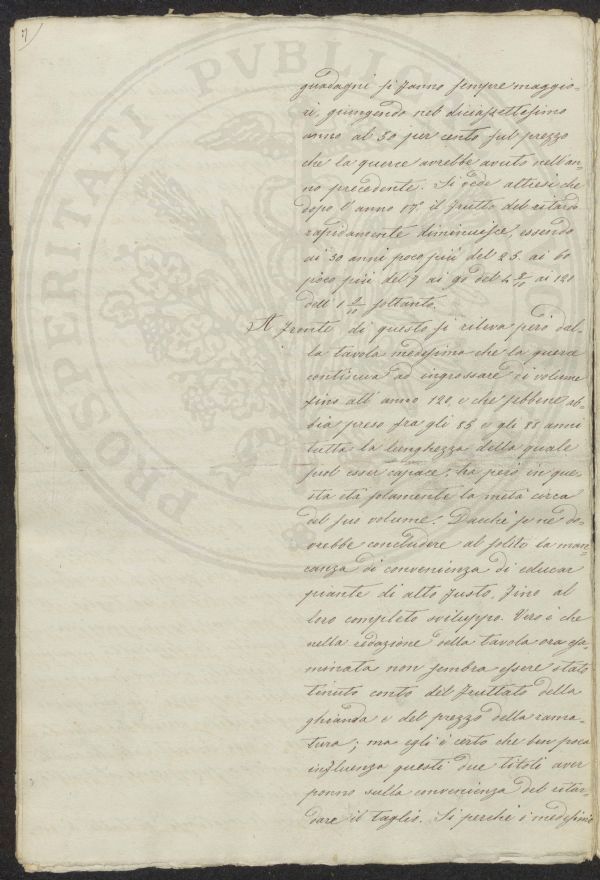 7)
guadagni si fanno sempre maggio-
ri, giungendo nel diciassettesimo
anno al 50 per cento sul prezzo
che la querce avrebbe avuto nell'an-
no precedente. Si vede altresì che
dopo l'anno 17.º il frutto del ritardo
rapidamente diminuisce, essendo
ai 30 anni poco più del 25. ai 60
poco più del 9 ai 90 del ai 120
dell' 1 soltanto.
A fronte di questo si rileva però dal-
la tavola medesima che la querce
continua ad ingrossare di volume
fino all'anno 120, e che sebbene ab-
bia preso fra gli 85 e gli 88 anni
tutta la lunghezza della quale
può esser capace, ha però in que-
sta età solamente la metà circa
del suo volume. Dacchè se ne do-
vrebbe concludere al solito la man-
canza di convenienza di educar
piante di alto fusto, fino al
loro completo sviluppo. Vero è che
nella redazione della tavola ora esa-
minata non sembra essere stato
tenuto conto del fruttato della
ghianda e del prezzo della rama-
tura; ma egli è certo che ben poca
influenza questi due titoli aver
ponno sulla convenienza del ritar-
dare il taglio. Sì perchè i medesimi
PROSPERITATI PVBLIC